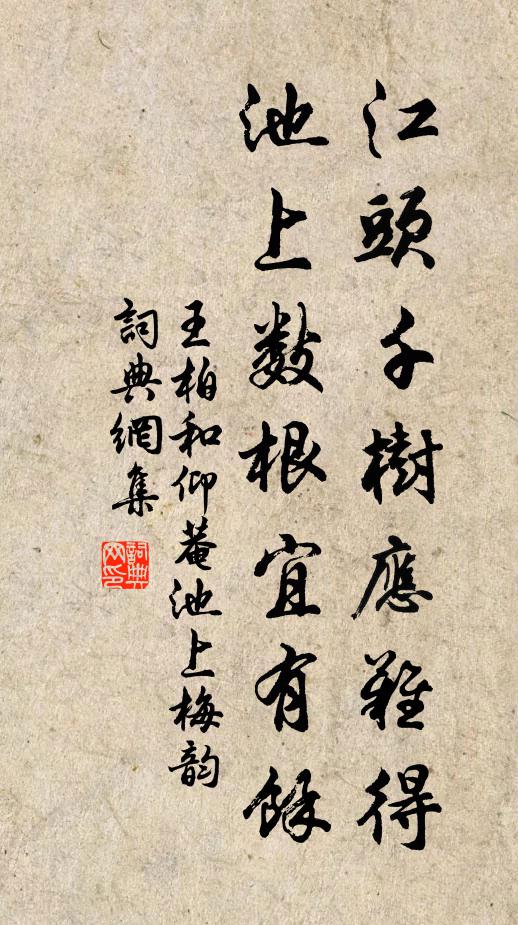 江頭千樹應難得
池上數根宜有餘
王柏和仰菴池上梅韵
詞典網集
詞典网印